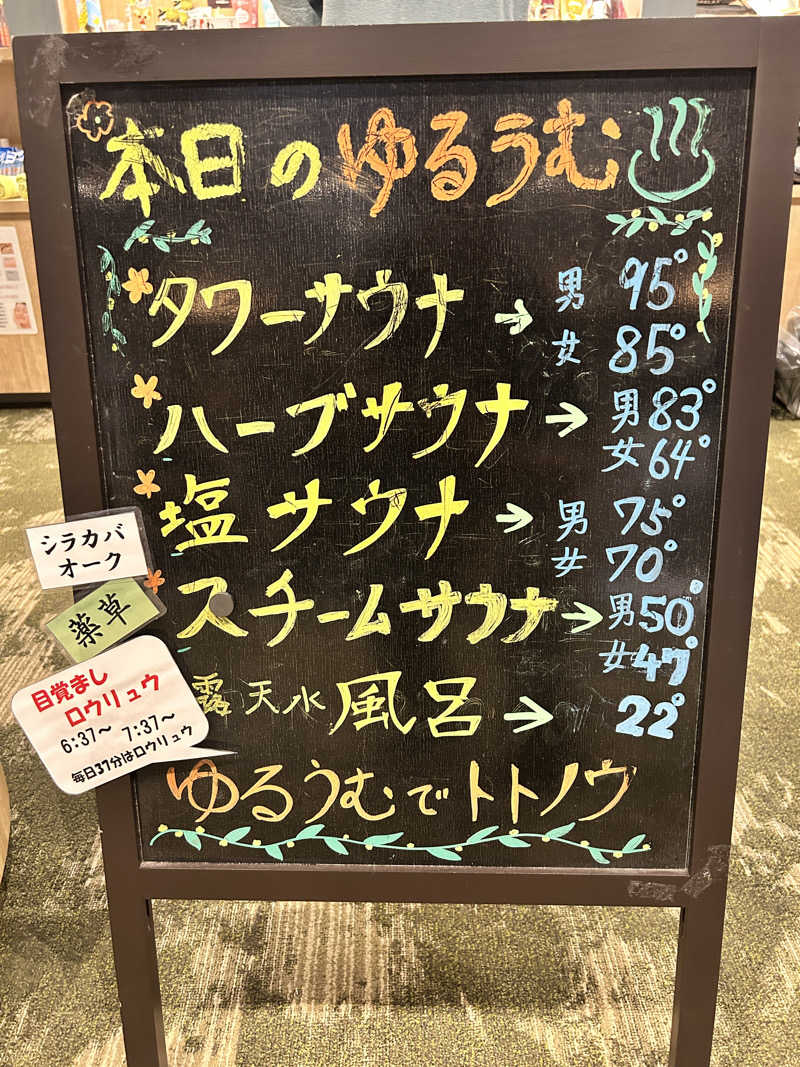 本日のゆるうむ
タワーサウナ→ 男 95°
女 85°
ハーブサウナ→ 男 83°
女 64°
塩サウナ→ 男 75°
女 70°
スチームサウナ→ 男 50°
女 47°
露天水風呂→ 22°
ゆるうむでトトノウ
シラカバ
オーク
薬草
目覚まし
ロウリュウ
6:37～ 7:37～
毎日37分はロウリュウ